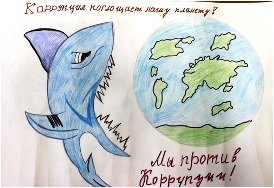 Коррупция поглощает нашу планету?
Мы против
Коррупции!